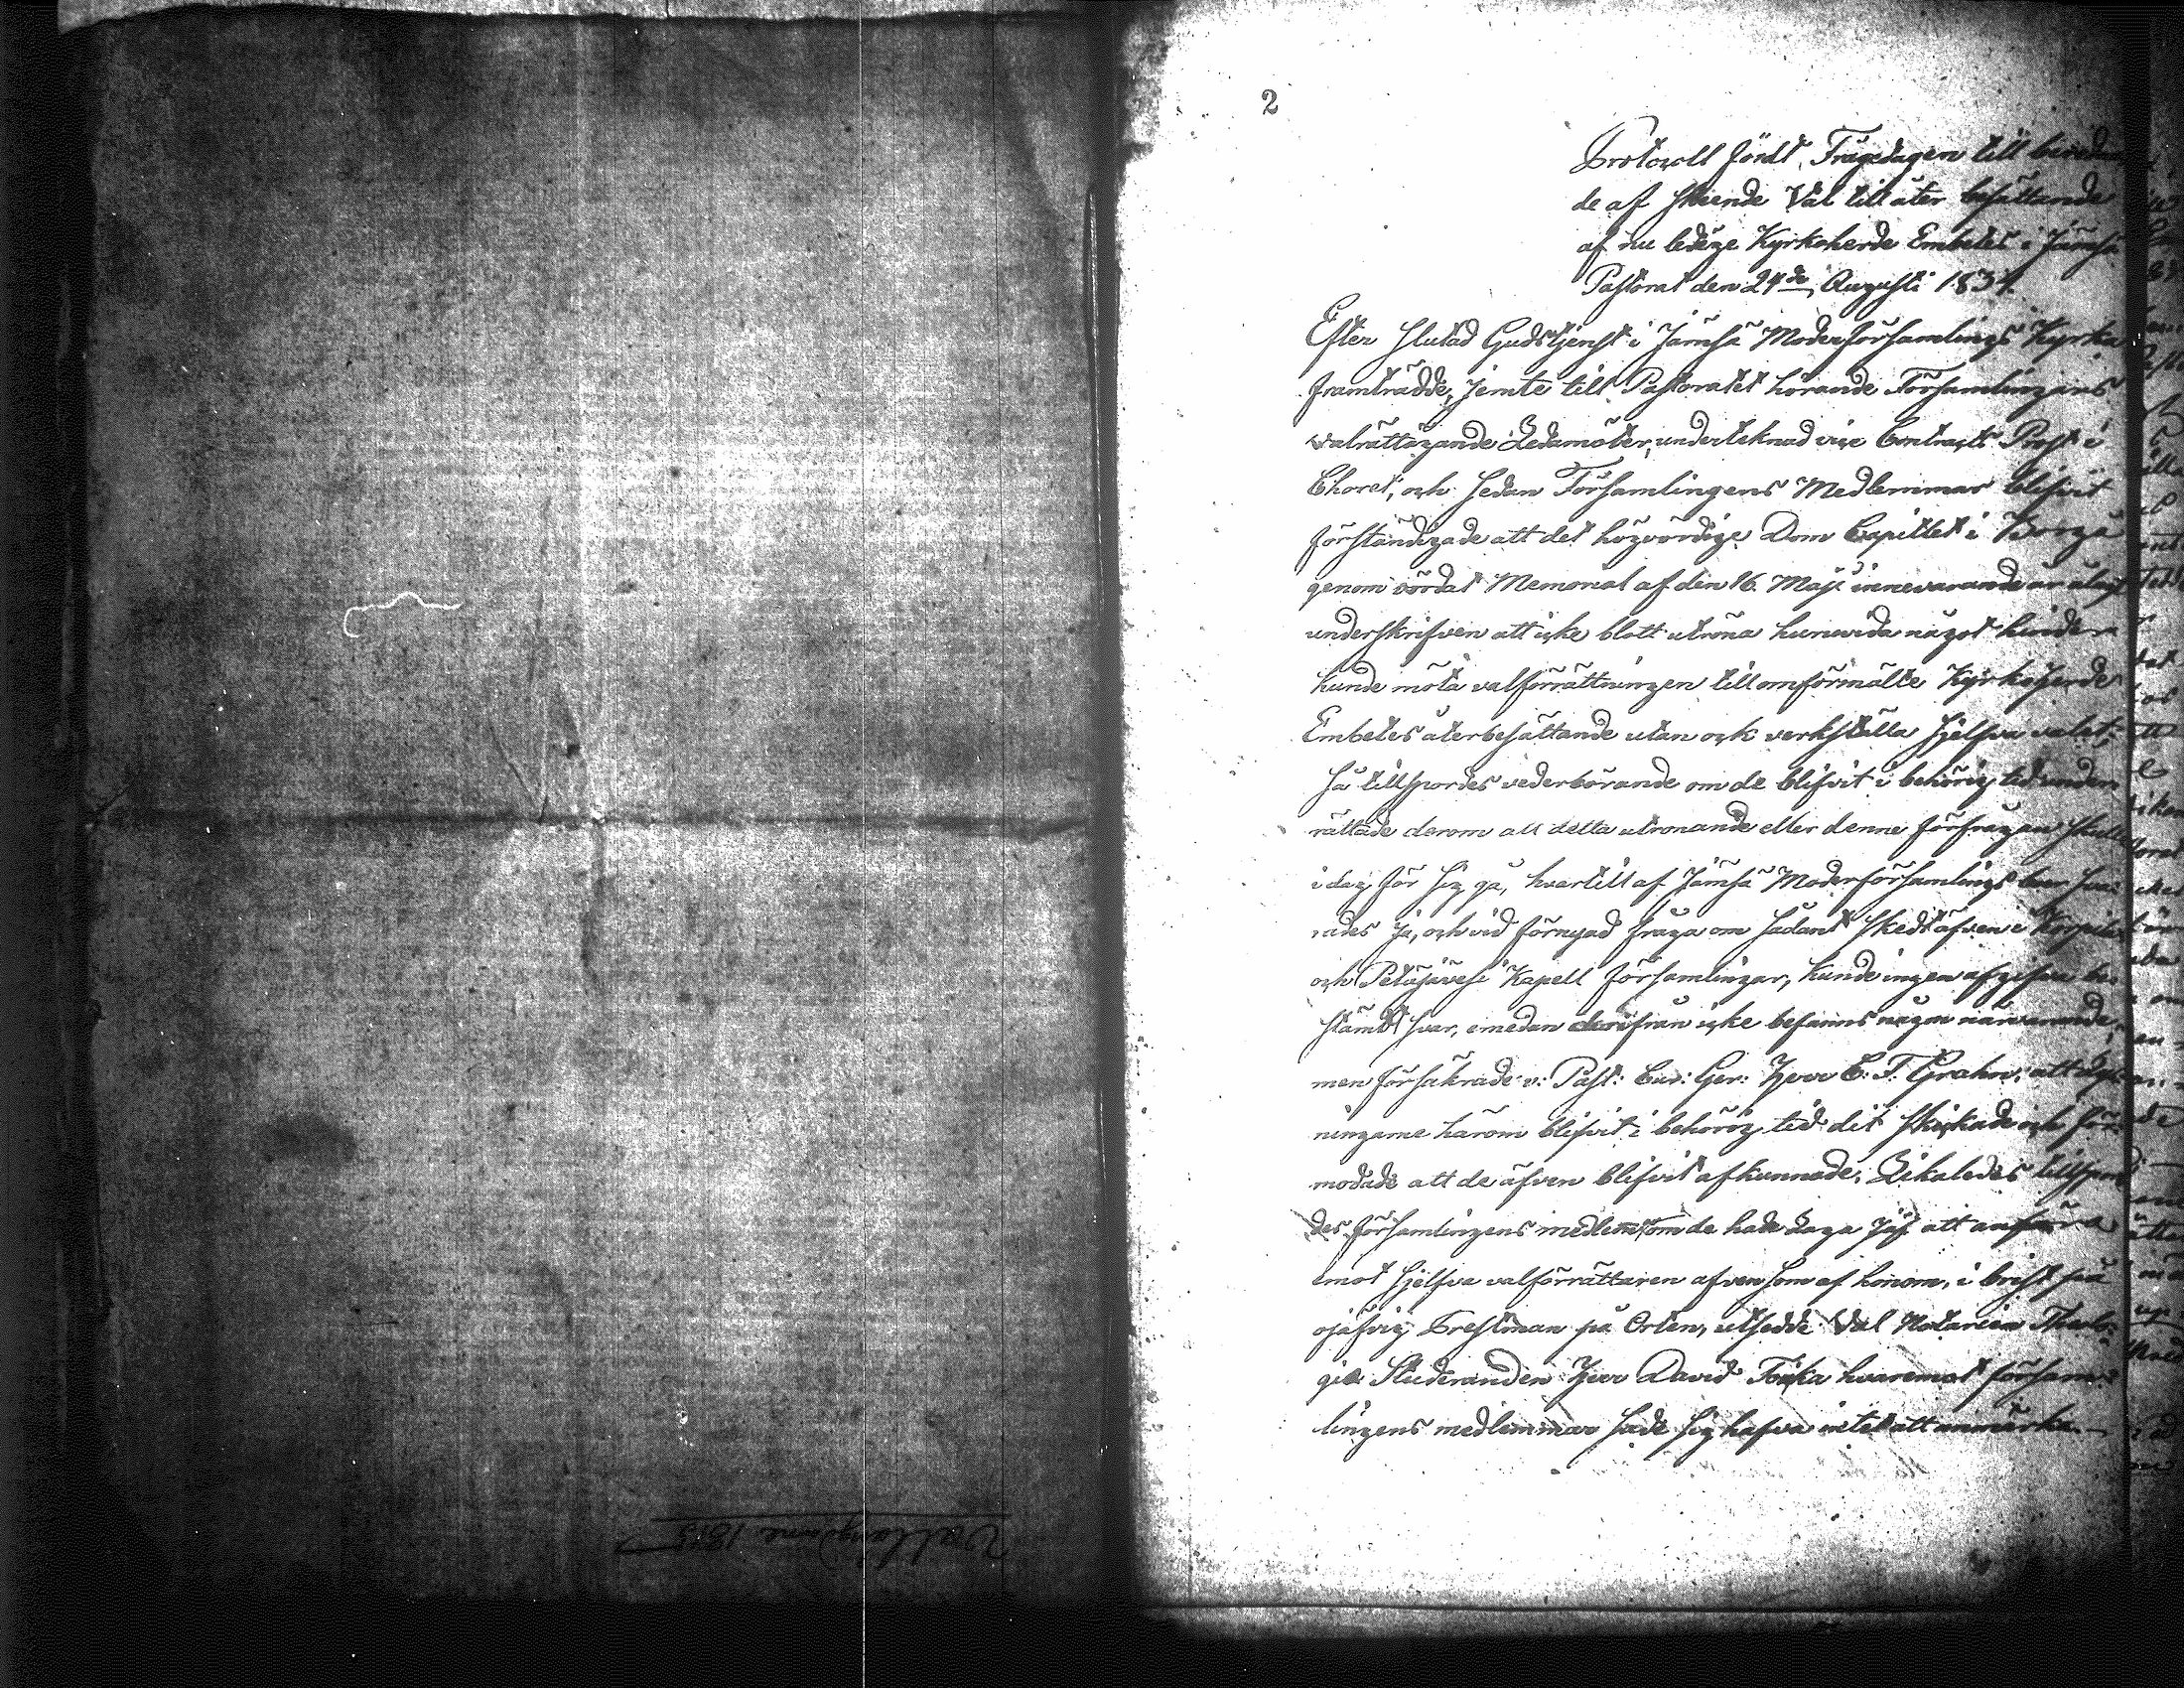 2
Protocoll fördt Frågedagen till beredan
de af skeende Val till åter besättande
af nu lediga Kyrkoherde Embetet i Jämsä
Pastorat den 24de Augusti 1834.
Efter slutad Gudstjenst i Jämsä Moderförsamlings Kyrka
framträdde, jemte till Pastoratet hörande Församlingens
valrättägande Ledamöter, undertecknad vice Contracts Prost i
Choret, och sedan Församlingens Medlemmar blifvit
förständigade att det högvördige Dom Capitlet i Borgå
genom vördat Memorial af den 16 Maji innevarande år
underskrifven att icke blott utröna huruvida något hinder
kunde möta valförrättningen till omförmälte Kyrkoherde
Embetes återbesättande utan ock verkställa sjelfva valet;
så tillspordes vederbörande om de blifvit i behörig tid under
rättade derom att detta utrönande eller denna förfrågan skulle
i dag för sig gå, hvartill af Jämsä Moderförsamlings boer sva-
rades ja, och vid förnyad fråga om sådant skedt äfven i
och Petäjävesi Kapell församlingar, kunde ingen afgifva be-
stämdt svar, emedan derifrån icke befanns någon närvarande,
men försäkrade v: Past: Cur: Ger: Herr C: F: Grahn, att
ningarne härom blifvit i behörig tid dit skickade och för-
modade att de äfven blifvit afkunnade. Likaledes tillspor
des församlingens medlem: om de hade laga jäf att anföra
emot sjelfva valförrättaren äfvensom af honom, i brist på
ojäfvig Prestman på Orten, utsedde Val Notarien Theolo-
giæ Studeranden Herr David hvaremot försam-
lingens medlemmar sade sig hafva intet att anmärka.
1835